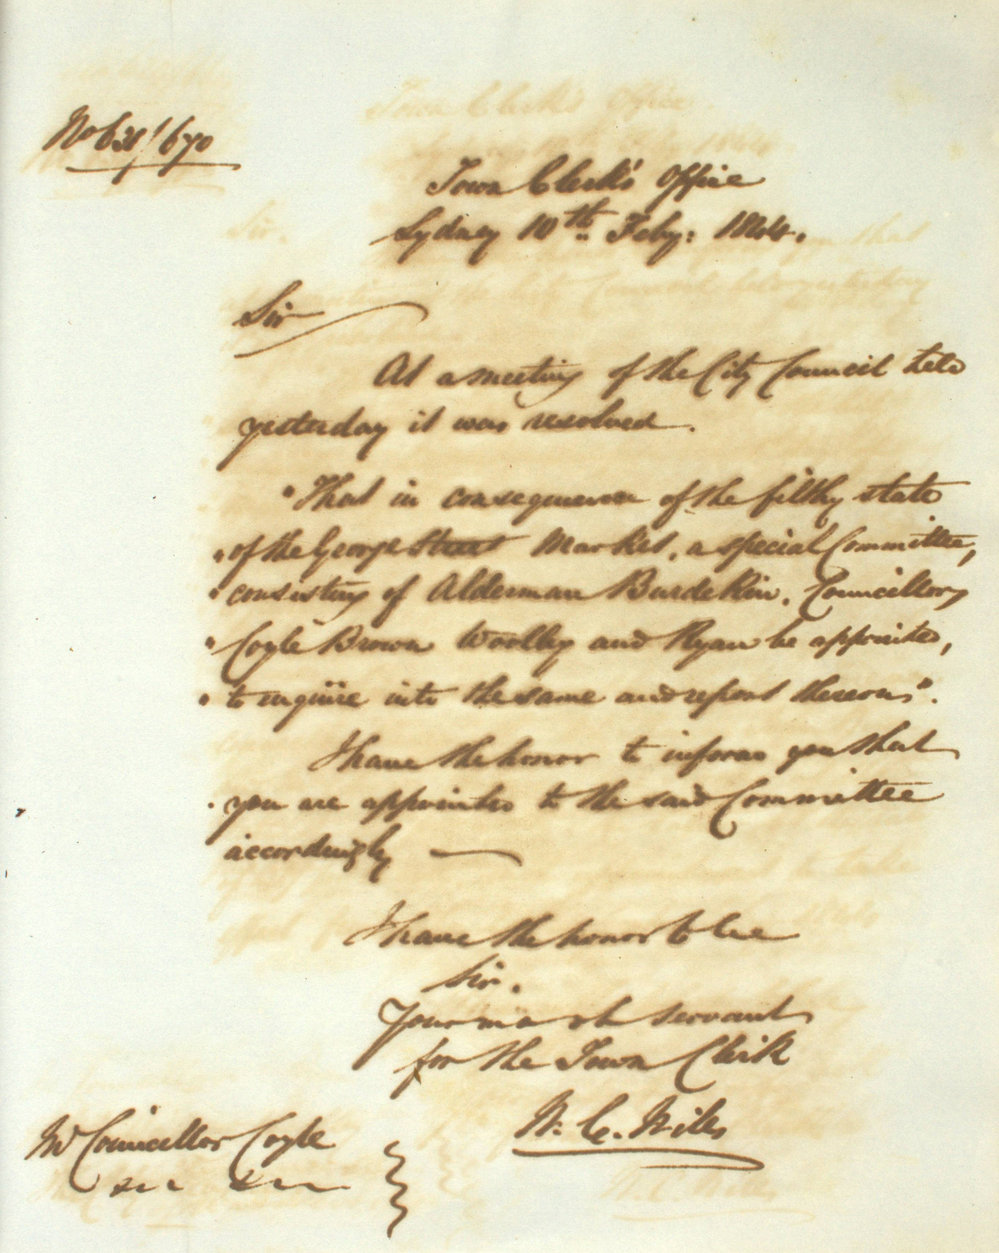 Town Clerk's Office
Sydney 10th Feby: 1844.
Sir
At a meeting of the City Council held
yesterday it was resolved.
"That in consequence of the filthy state
"of the George Street Market, a special Committee,
"consisting of Alderman Burdekin, Councillors
"Coyle Brown Woolley and Ryan be appointed,
"to inquire into the same and report thereon".
I have the honor to inform you that
you are appointed to the said Committee
accordingly
I have the honor to be
Sir.
Your servant
for the Town Clerk
W. C. Wills
Mr Councillor Coyle